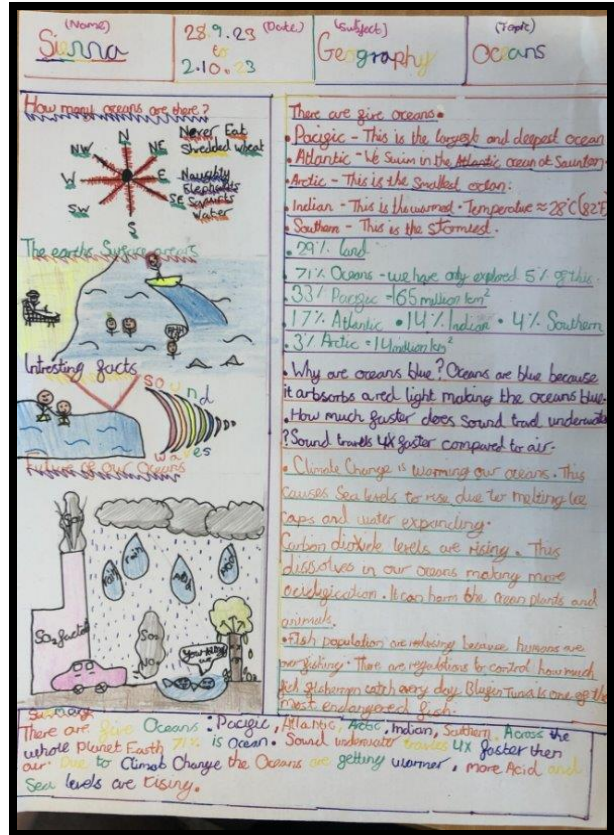 (Name)
Sienna
28.9.23 (Date)
to
2.10.23
(Subject)
Geography
(Topic)
Oceans
How many oceans are there?
N
NW NE
W E
SW SE
S
Never Eat
Shredded Wheat
Naughty
Elephants
Squirts
Water
The earths Surface areas
Intresting facts
Sound
waves
Future of our Oceans
SO₂ factory
rain
acid
SO₂
NO
There are five oceans.
• Pacific - This is the largest and deepest ocean
• Atlantic - We Swim in the Atlantic ocean at Saunton.
• Arctic - This is the Smallest ocean.
• Indian - This is the warmest. Temperature ≈ 28°C (82°F
• Southern - This is the stormiest.
• 29% land
• 71% Oceans - we have only explored 5% of this.
• 33% Pacific = 165 million km²
• 17% Atlantic • 14% Indian • 4% Southern
• 3% Arctic = 14 million km²
• Why are oceans blue? Oceans are blue because
it arbsorbs a red light making the oceans blue.
• How much faster does Sound travel underwater
? Sound travels 4X faster compared to air.
• Climate Change is warming our oceans. This
causes Sea levels to rise due to melting Ice
caps and water expanding.
Carbon dioxide levels are rising. This
dissolves in our oceans making more
acidification. It can harm the ocean plants and
animals.
• Fish population are reducing because humans are
overfishing. There are regulations to control how much
fish fishermen catch every day. Bluefin Tuna is one of the
most endangered fish.
Summary
There are five Oceans: Pacific, Atlantic, Arctic, Indian, Southern. Across the
whole Planet Earth 71% is ocean. Sound underwater travles 4X faster then
air. Due to Climat Change the Oceans are getting warmer, more Acid and
Sea levels are rising.